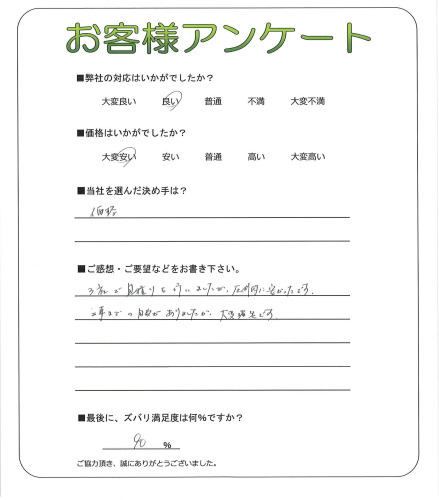 お客様アンケート
■弊社の対応はいかがでしたか？
大変良い 良い 普通 不満 大変不満
■価格はいかがでしたか？
大変安い 安い 普通 高い 大変高い
■当社を選んだ決め手は？
価格
■ご感想・ご要望などをお書き下さい。
3社で見積りを行いましたが、圧倒的に安かったです。
工事までの日数がありましたが、大変満足です。
■最後に、ズバリ満足度は何％ですか？
90 ％
ご協力頂き、誠にありがとうございました。